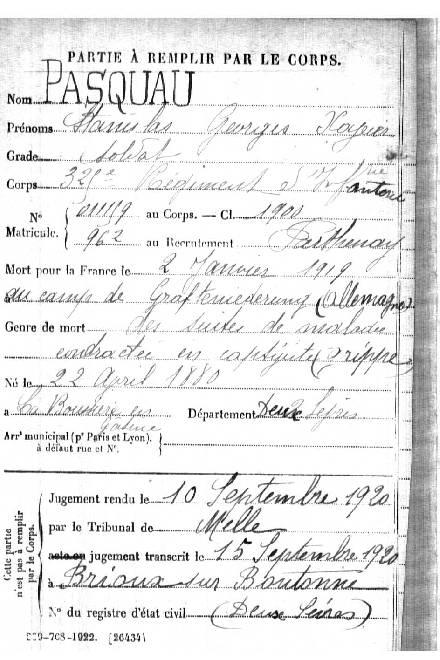 PARTIE À REMPLIR PAR LE CORPS.
Nom PASQUAU
Prénoms Stanislas Georges Xavier
Grade soldat
Corps 325e Régiment d'Infanterie
N° Matricule. { 011119 au Corps. — Cl. 1900
962 au Recrutement Parthenay
Mort pour la France le 2 Janvier 1919
au camp de (Allemagne)
Genre de mort des suites de maladie
contractée en captivité (grippe)
Né le 22 April 1880
à La en Gatine Département Deux Sèvres
Arrt municipal (pr Paris et Lyon). à défaut rue et N°. {
Cette partie n'est pas à remplir par le Corps.
Jugement rendu le 10 Septembre 1920
par le Tribunal de Melle
acte ou jugement transcrit le 15 Septembre 1920
à Brioux sur Boutonne
N° du registre d'état civil (Deux Sèvres)
-708-1922. [26434]